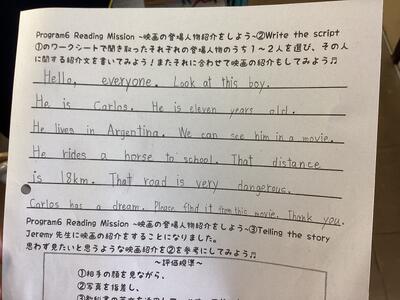 Program6 Reading Mission ~映画の登場人物紹介をしよう~②Write the script
①のワークシートで聞き取ったそれぞれの登場人物のうち1~2人を選び、その人
に関する紹介文を書いてみよう!またそれに合わせて映画の紹介もしてみよう♫
Hello, everyone. Look at this boy.
He is Carlos. He is eleven years old.
He lives in Argentina. We can see him in a movie.
He rides a horse to school. That distance
is 18km. That road is very dangerous.
Carlos has a dream. Please find it from this movie. Thank you.
Program6 Reading Mission ~映画の登場人物紹介をしよう~③Telling the story
Jeremy先生に映画の紹介をすることになりました。
思わず見たいと思うような映画紹介を②を参考にしてみよう♫
~評価規準~
①相手の顔を見ながら、
②写真を指差し、